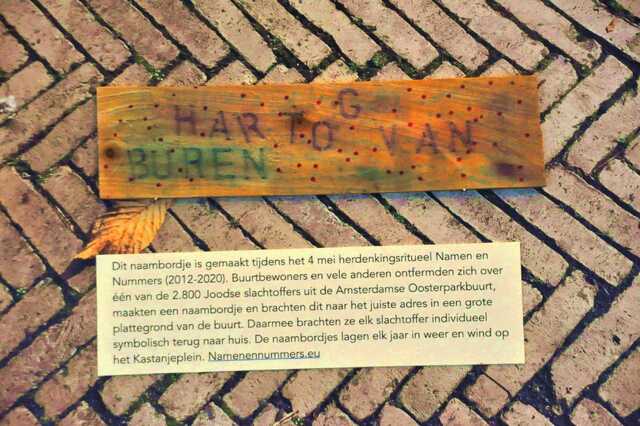 HARTOG VAN
BUREN
Dit naambordje is gemaakt tijdens het 4 mei herdenkingsritueel Namen en
Nummers (2012-2020). Buurtbewoners en vele anderen ontfermden zich over
één van de 2.800 Joodse slachtoffers uit de Amsterdamse Oosterparkbuurt,
maakten een naambordje en brachten dit naar het juiste adres in een grote
plattegrond van de buurt. Daarmee brachten ze elk slachtoffer individueel
symbolisch terug naar huis. De naambordjes lagen elk jaar in weer en wind op
het Kastanjeplein. Namenennummers.eu